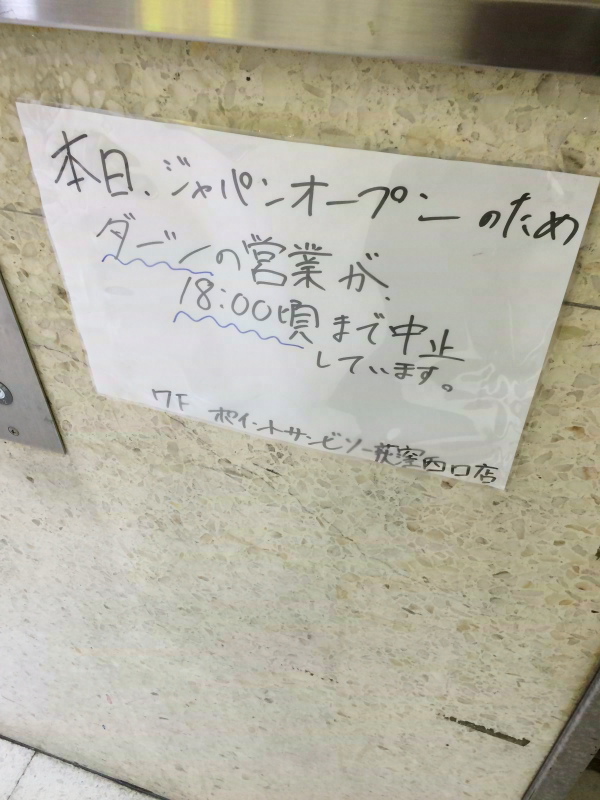 本日、ジャパンオープンのため
ダーツの営業が、
18:00頃まで中止
しています。
7F ポイントサンビリー荻窪西口店